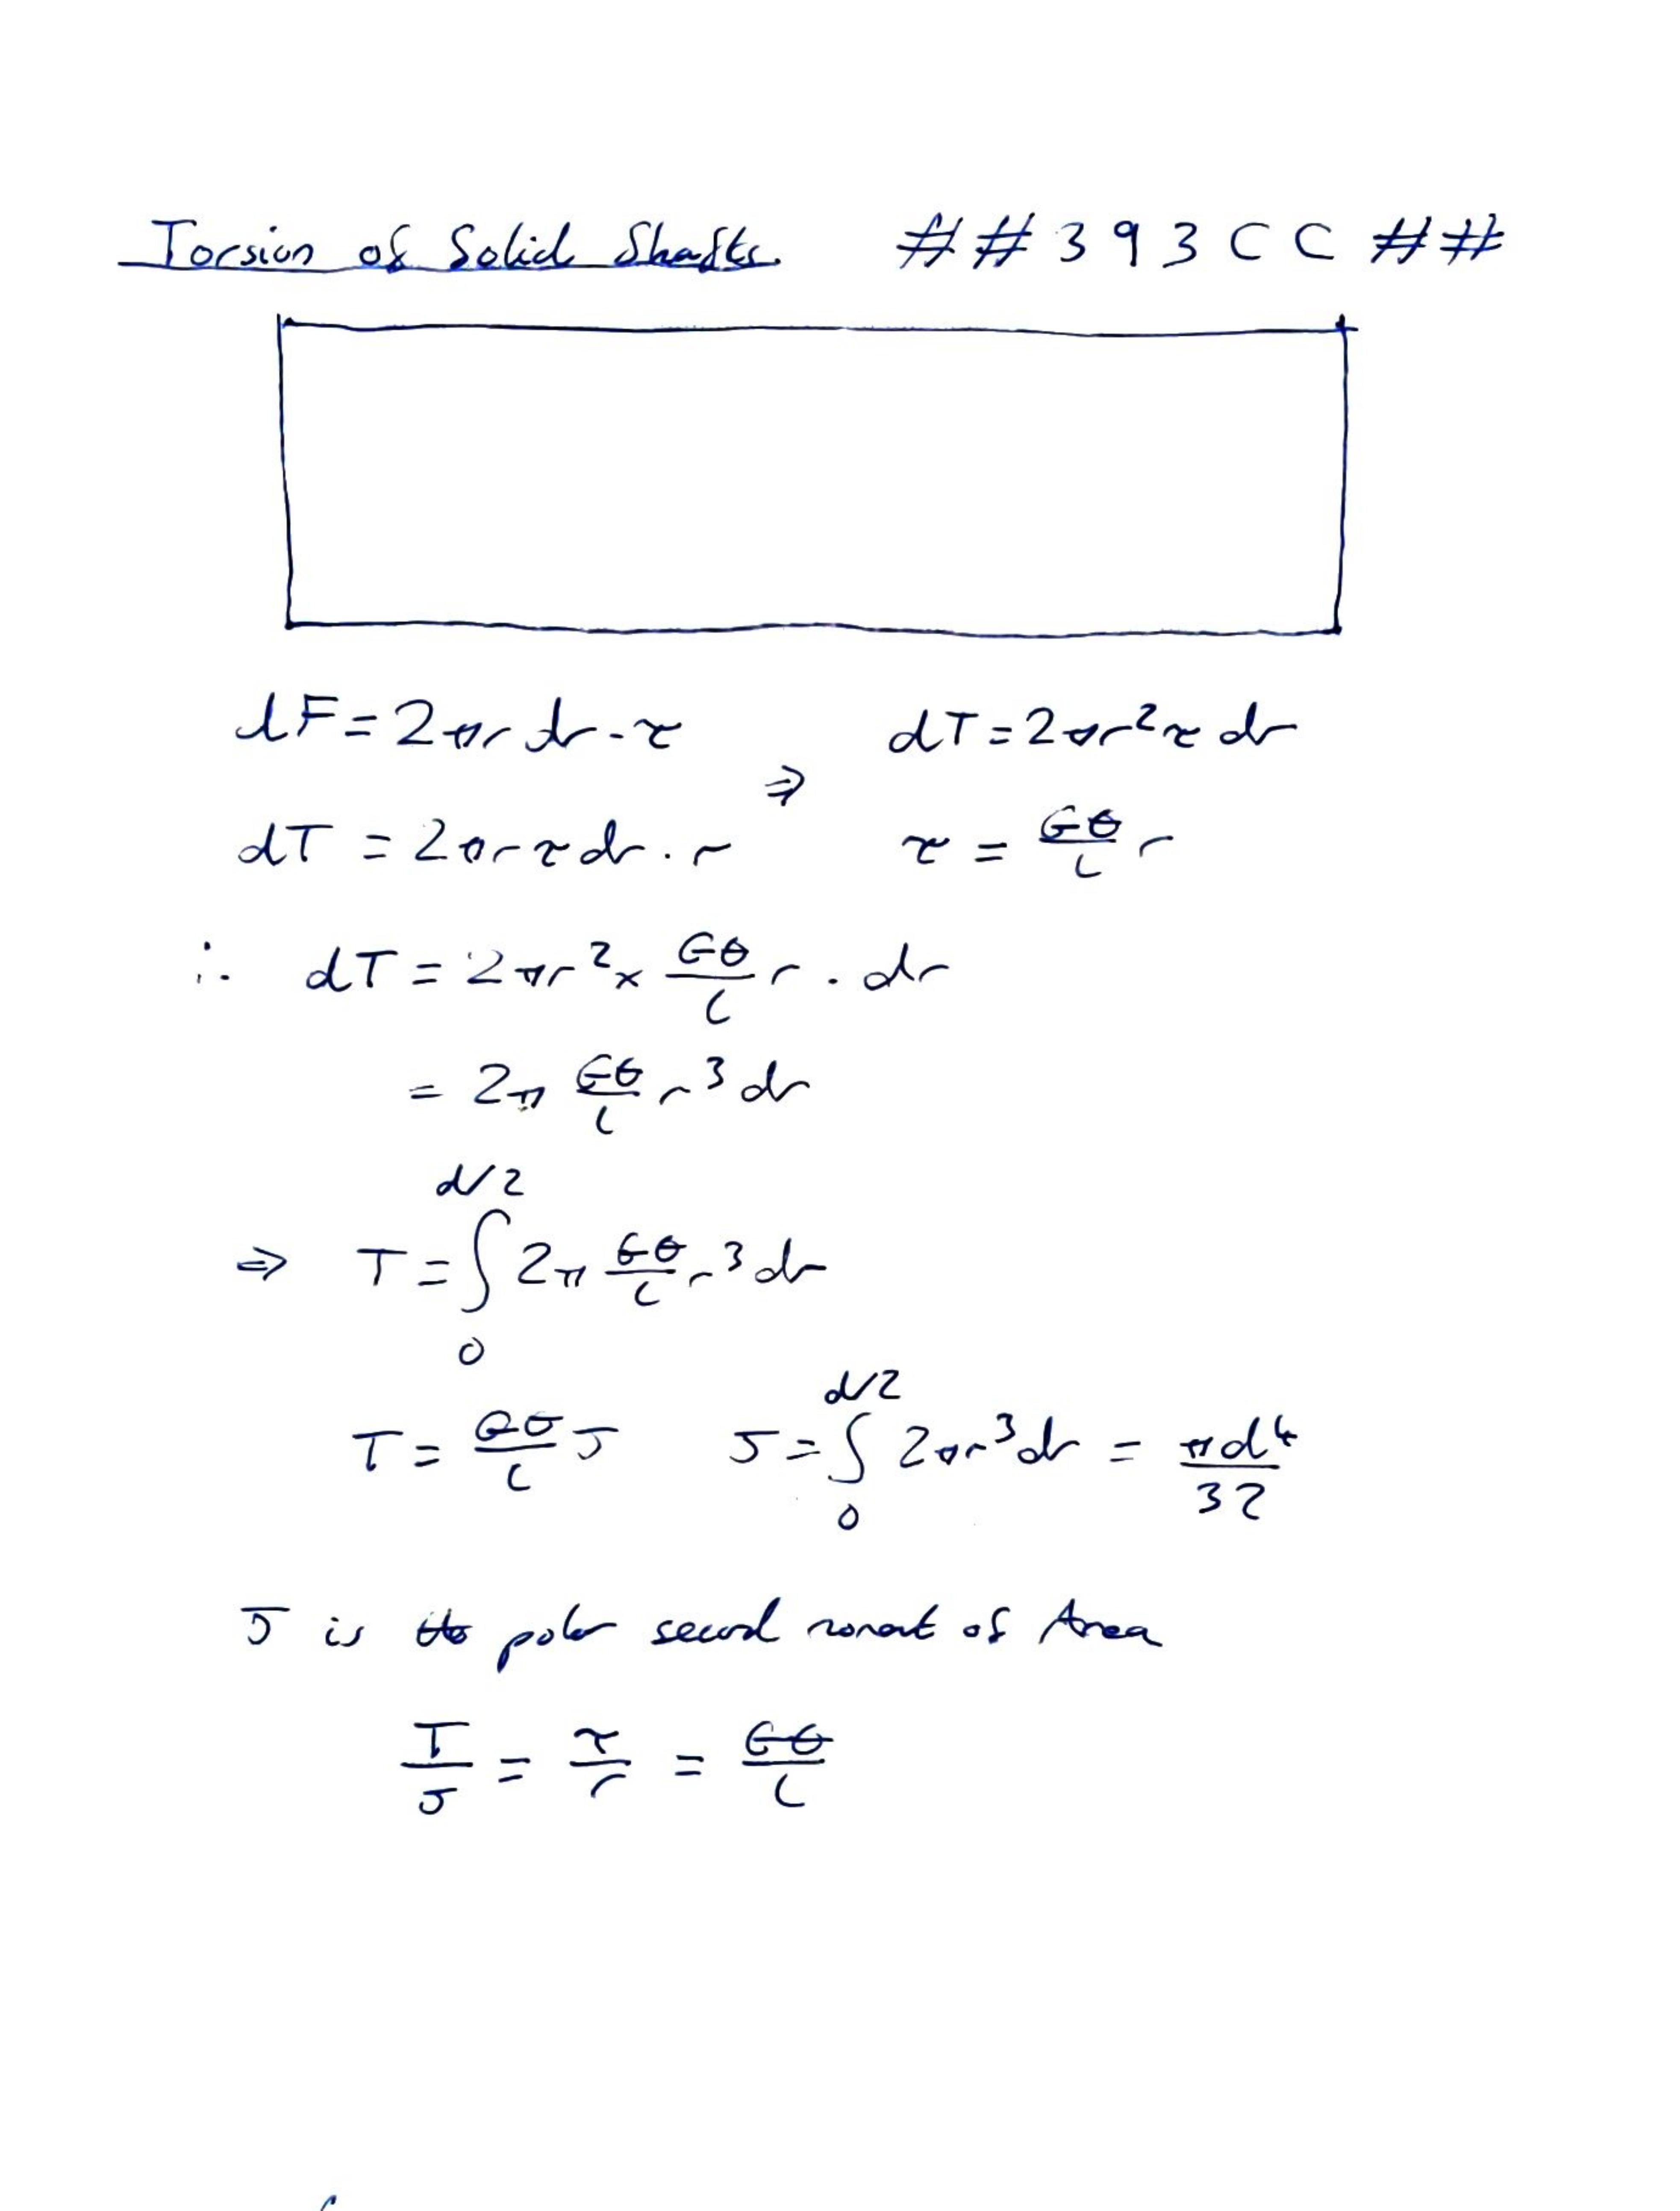 Torsion of Solid Shafts ##393CC##
dF = 2πr dr · τ
dT = 2πr²τ dr
⇒
dT = 2πrτdr · r
τ = Gθ/L r
∴ dT = 2πr² × Gθ/L r · dr
= 2π Gθ/L r³ dr
⇒ T = ∫₀^{d/2} 2π Gθ/L r³ dr
T = Gθ/L J J = ∫₀^{d/2} 2πr³ dr = πd⁴/32
J is the polar second moment of Area
T/J = τ/r = Gθ/L